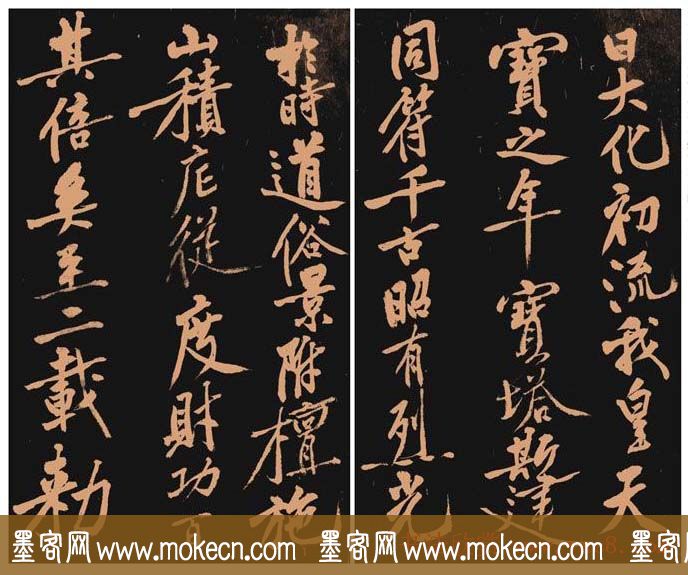 日大化初流我皇天
寶之年寶塔斯建
同符千古昭有烈光
於時道俗景附檀施
山積庀徒度財功百
其倍矣至二載勅
墨客网 www.mokecn.com 墨客网 www.mokecn.com